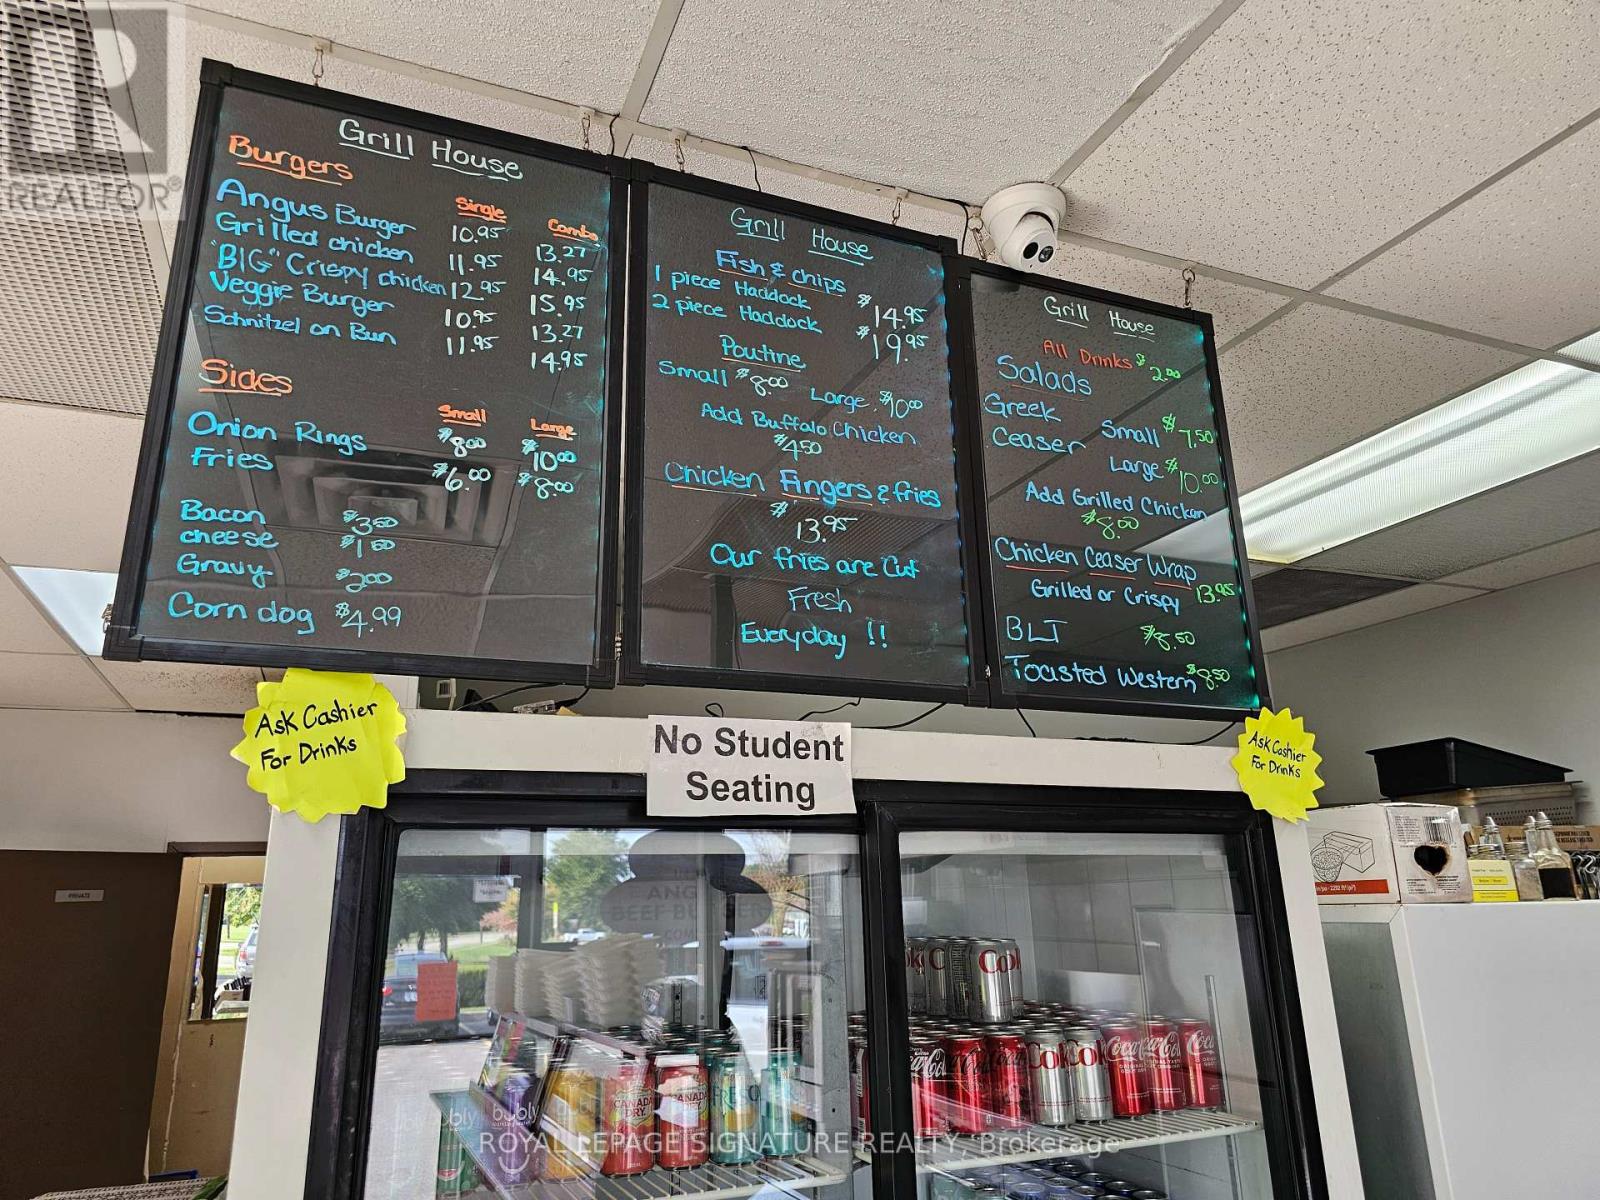 REALTOR®
Grill House
Burgers
Single Combo
Angus Burger 10.95 13.27
Grilled chicken 11.95 14.95
"BIG" Crispy chicken 12.95 15.95
Veggie Burger 10.95 13.27
Schnitzel on Bun 11.95 14.95
Sides
Small Large
Onion Rings $8.00 $10.00
Fries $6.00 $8.00
Bacon $3.50
cheese $1.50
Gravy $2.00
Corn dog $4.99
Grill House
Fish & chips
1 piece Haddock $14.95
2 piece Haddock $19.95
Poutine
Small $8.00 Large $10.00
Add Buffalo Chicken
$4.50
Chicken Fingers & fries
$13.95
Our fries are Cut
Fresh
Everyday !!
Grill House
All Drinks $2.00
Salads
Greek
Ceaser Small $7.50
Large $10.00
Add Grilled Chicken
$8.00
Chicken Ceaser Wrap
Grilled or Crispy 13.95
BLT $8.50
Toasted Western $8.50
Ask Cashier
For Drinks
No Student
Seating
Ask Cashier
For Drinks
PRIVATE
ANG
BEEF BU
bubly
CANADA
DRY
CANADA
DRY
Coca-Cola
ROYAL LEPAGE SIGNATURE REALTY, Brokerage